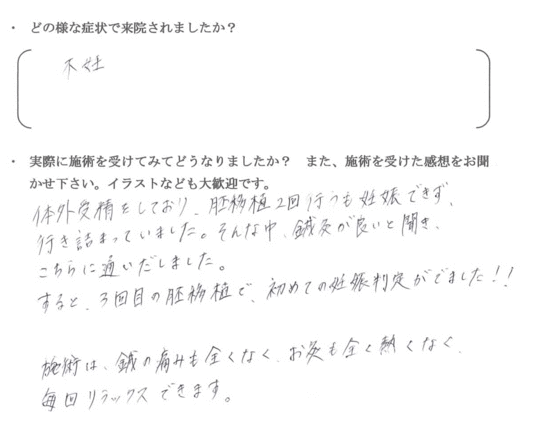 ・ どの様な症状で来院されましたか？
不妊
・ 実際に施術を受けてみてどうなりましたか？　また、施術を受けた感想をお聞
かせ下さい。イラストなども大歓迎です。
体外受精をしており、胚移植2回行うも妊娠できず、
行き詰まっていました。そんな中、鍼灸が良いと聞き、
こちらに通いだしました。
すると、3回目の胚移植で、初めての妊娠判定がでました！！
施術は、鍼の痛みも全くなく、お灸も全く熱くなく、
毎回リラックスできます。